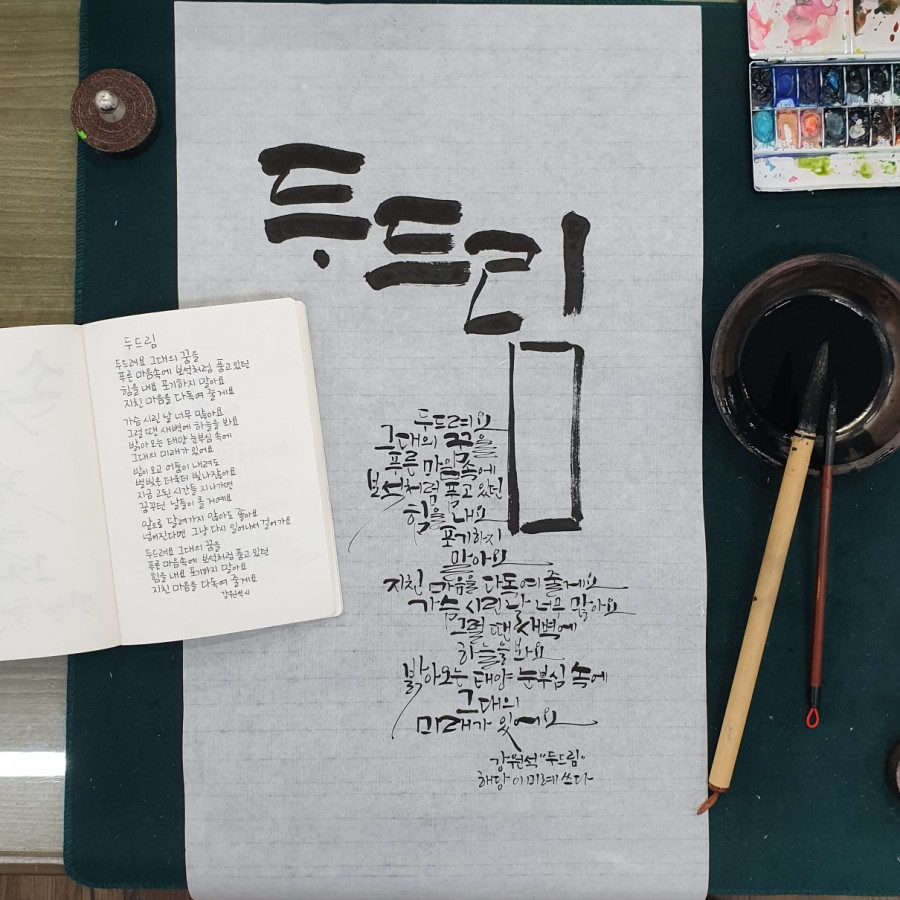 두드림
두드려요 그대의 꿈을
푸른 마음속에 보석처럼 품고있던
힘을 내요 포기하지 말아요
지친 마음을 다독여 줄게요
가슴 시린 날 너무 많아요
그럴 땐 새벽에 하늘을 봐요
밝아오는 태양 눈부심 속에
그대의 미래가 있어요
밤이 오고 어둠이 내려도
별빛은 더욱더 빛나잖아요
지금 고된 시간들 지나가면
꿈꾸던 날들이 올 거예요
앞으로 달려가지 않아도 좋아요
넘어진다면 그냥 다시 일어나서 걸어가요
두드려요 그대의 꿈을
푸른 마음속에 보석처럼 품고있던
힘을 내요 포기하지 말아요
지친 마음을 다독여 줄게요
강원석 시
두드림
두드려요
그대의 꿈을
푸른 마음속에
보석처럼 품고있던
힘을 내요
포기하지
말아요
지친 마음을 다독여 줄게요
가슴 시린 날 너무 많아요
그럴 땐 새벽에
하늘을 봐요
밝아오는 태양 눈부심 속에
그대의
미래가 있어요
강원석 "두드림"
해당 이미례 쓰다